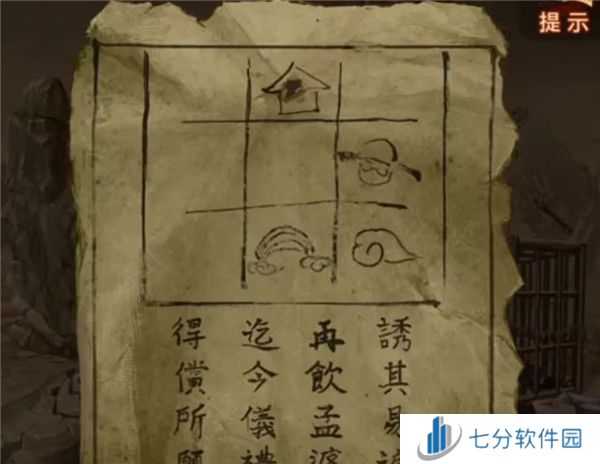 提示
誘其易
再飲孟婆
迄今儀禮
得償所願
七分软件园